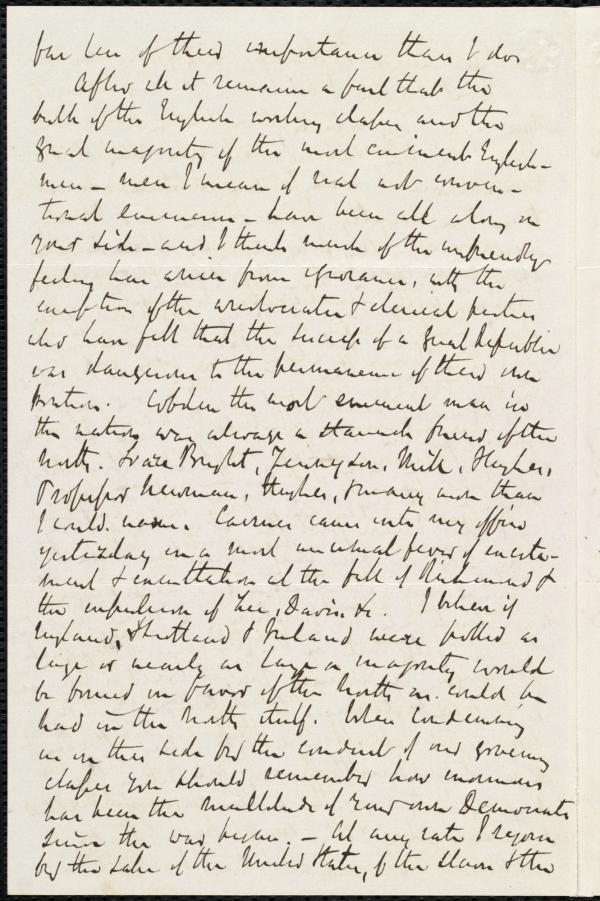 far less of their importance than I do
After all it remains a fact that the
bulk of the English working classes and the
great majority of the most eminent English-
men - men I mean of real not conven-
tional eminence - have been all along on
your side - and I think much of the unfriendly
feeling has arisen from ignorance, with the
exception of the aristocratic & clerical parties
who have felt that the success of a great Republic
was dangerous to the permanence of their own
position. Cobden the most eminent man in
the nation was always a staunch friend of the
North. So are Bright, Tennyson, Mill, Hughes,
Professor Newman, Hughes, & many more than
I could name. Cairnes came into my office
yesterday in a most unusual fever of excite-
ment & exultation at the fall of Richmond &
the expulsion of Lee, Davis &c. I believe if
England, Scotland & Ireland were polled as
large or nearly as large a majority would
be found in favor of the North as could be
had in the North itself. When condemning
us on this side for the conduct of our governing
classes you should remember how enormous
has been the multitude of your own Democrats
since the war began. - At any rate I rejoice
for the sake of the United States, of the slave & the